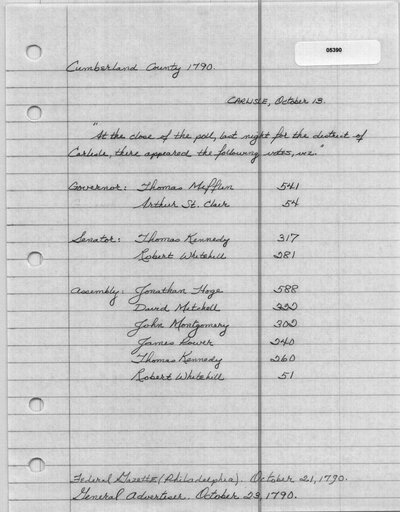 05390
Cumberland County 1790.
CARLISLE, October 13.
"At the close of the poll, last night for the district of
Carlisle, there appeared the following votes, viz."
Governor: Thomas Mifflin 541
Arthur St. Clair 54
Senator: Thomas Kennedy 317
Robert Whitehill 281
Assembly: Jonathan Hoge 588
David Mitchell 322
John Montgomery 302
James Power 240
Thomas Kennedy 260
Robert Whitehill 51
Federal Gazette (Philadelphia). October 21, 1790.
General Advertiser. October 23, 1790.